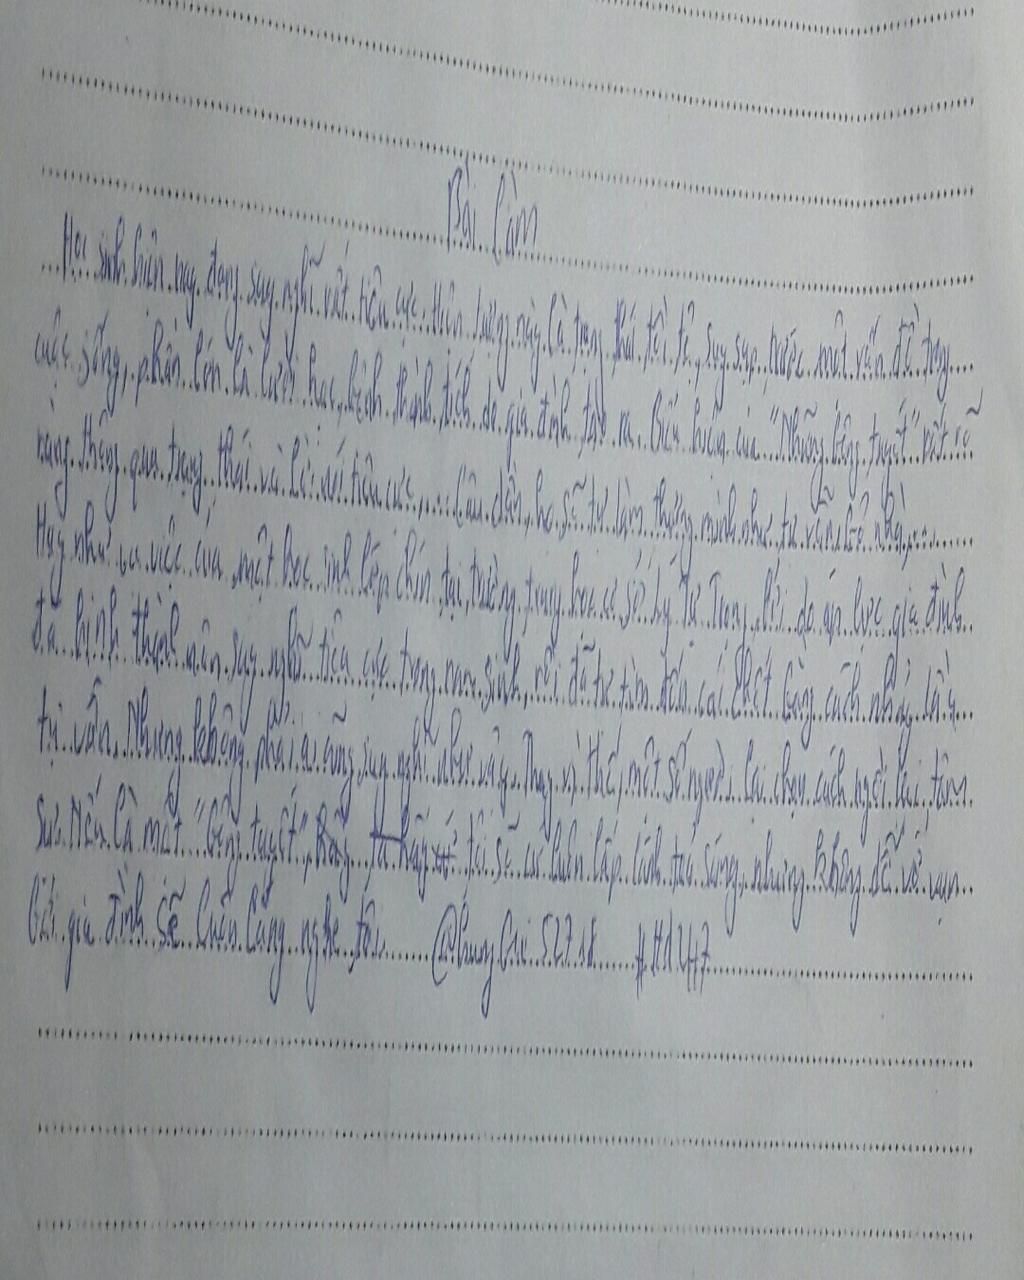 Bài làm
Học sinh hiện nay đang suy nghĩ rất tiêu cực. Hiện tượng này là trạng thái tồi tệ, suy sụp trước một vấn đề trong
cuộc sống, phần lớn là lười học, bệnh thành tích do gia đình tạo ra. Biểu hiện của "Những bông tuyết" rất rõ
ràng thông qua trạng thái và lời nói tiêu cực,.... Lâu dần, họ sẽ tự làm thương mình như tự vẫn, bỏ nhà,....
Hãy như vụ việc của một học sinh lớp chín tại trường trung học cơ sở Lý Tự Trọng, bởi do áp lực gia đình
đã hình thành nên suy nghĩ tiêu cực trong nam sinh, rồi đã tự tìm đến cái chết bằng cách nhảy lầu
tự vẫn. Nhưng không phải ai cũng suy nghĩ như vậy. Thay vì thế, một số người lại chọn cách ngồi lại, tâm
sự. Nếu là một "bông tuyết", tôi sẽ cứ luôn lấp lánh toả sáng, nhưng không dễ vỡ vụn
bởi gia đình sẽ luôn lắng nghe tôi.